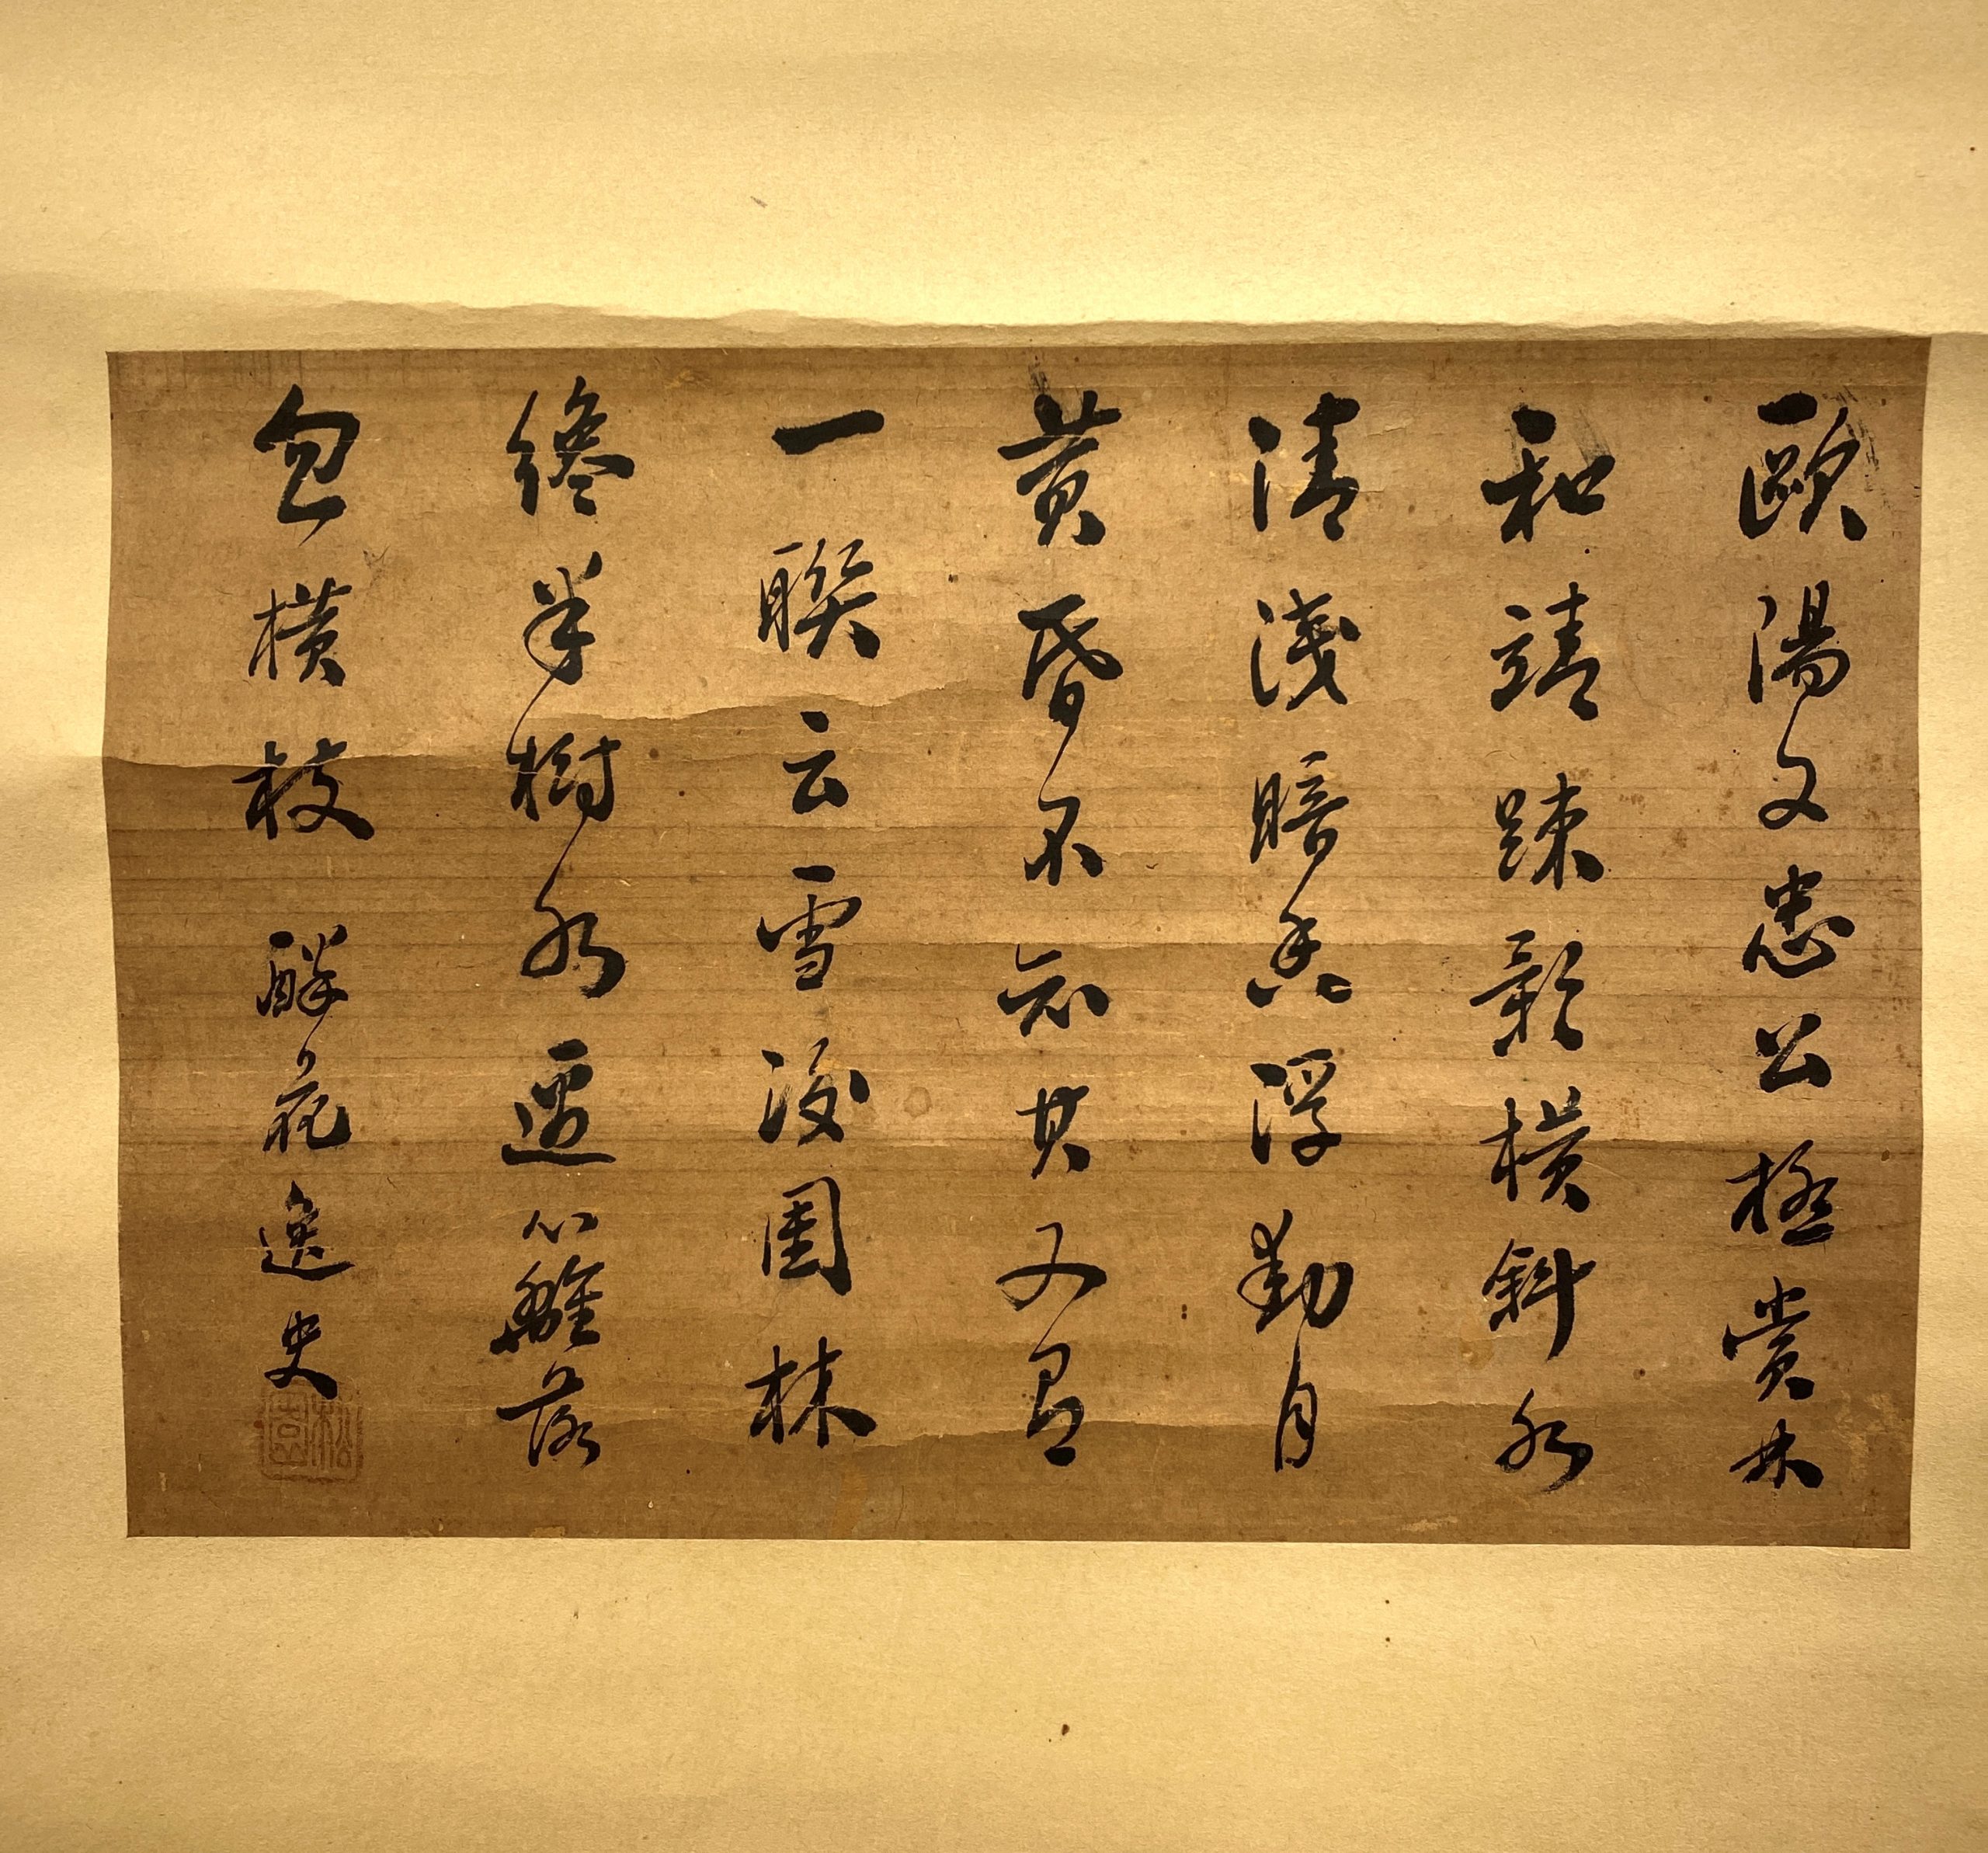 歐陽文忠公極賞林
和靖疎影橫斜水
清淺暗香浮動月
黃昏不知其又有
一聯云雪後園林
纔半樹水邊籬落
忽橫枝 醉花逸史